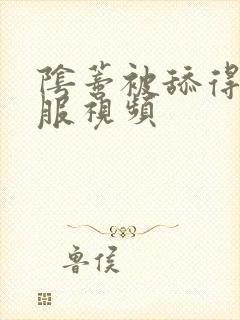 陰蒂被舔得
服視頻
魯侯